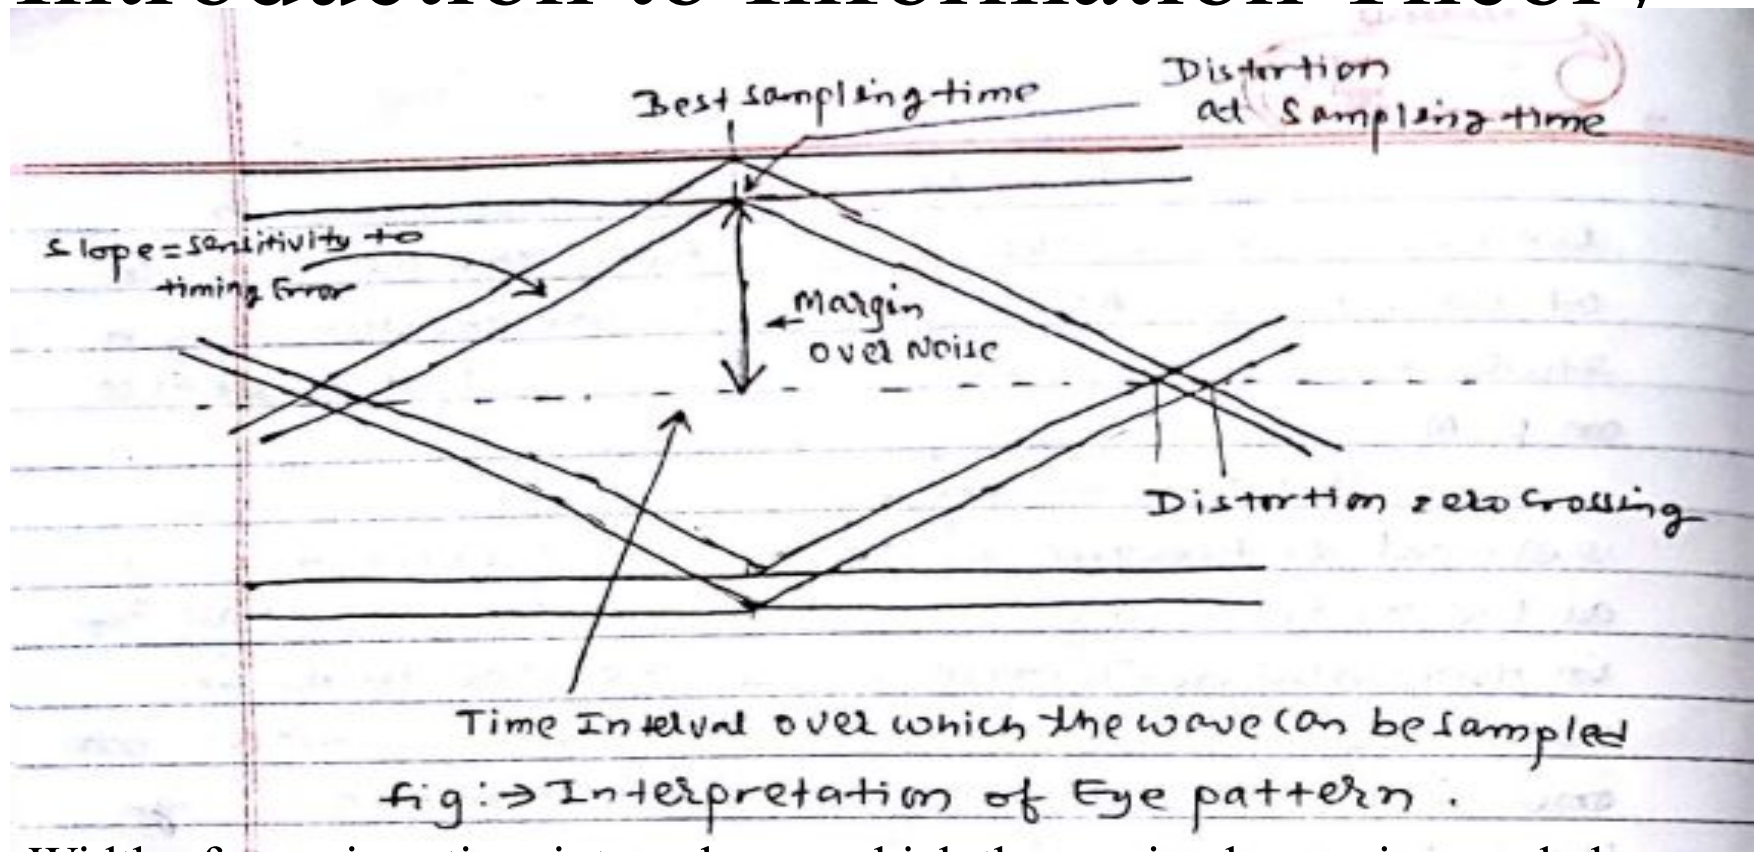 Introduction to Information Theory
Best sampling time
Distortion
at Sampling time
Slope = sensitivity to
timing Error
Margin
over Noise
Distortion zero crossing
Time Interval over which the wave can be sampled
fig :→ Interpretation of Eye pattern .